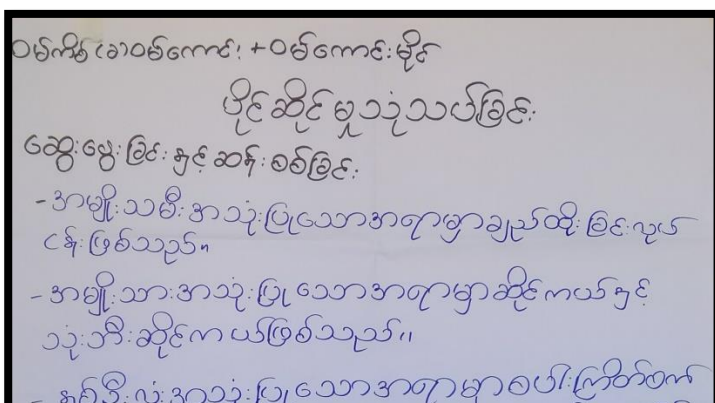 ဝမ်ကိစ် (ခ) ဝမ်ကောင်း + ဝမ်ကောင်းမိုင်
ပိုင်ဆိုင်မှုသုံးသပ်ခြင်း
ဆွေးနွေးခြင်းနှင့်ဆန်းစစ်ခြင်း
- အမျိုးသမီးအသုံးပြုသောအရာမှာချည်ထိုးခြင်းလုပ်
ငန်းဖြစ်သည်။
- အမျိုးသားအသုံးပြုသောအရာမှာဆိုင်ကယ်နှင့်
သုံးဘီးဆိုင်ကယ်ဖြစ်သည်။
- နှစ်ဦးလုံးအသုံးပြုသောအရာမှာစပါးကြိတ်စက်